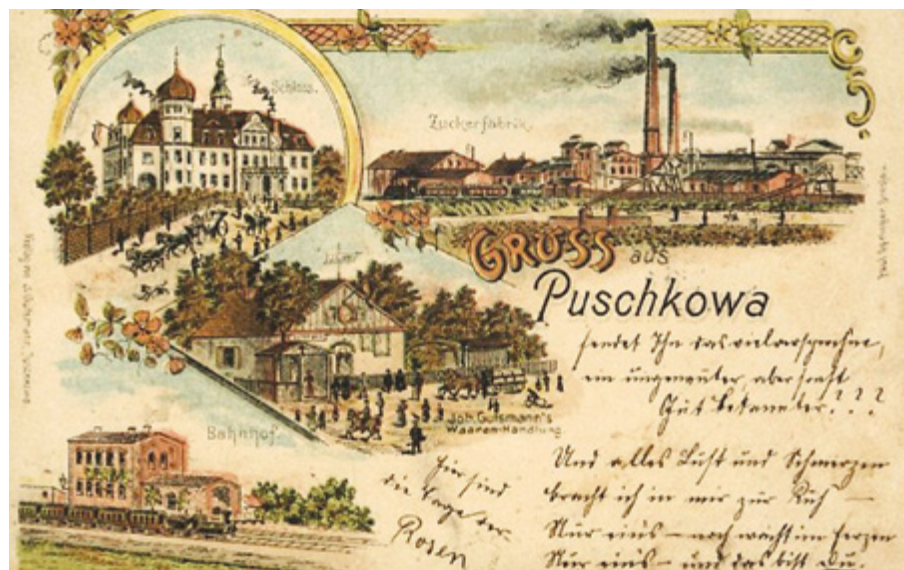 Schloss.
Zuckerfabrik.
GRUSS aus
Puschkowa
Joh. Gutsmann's
Waaren-Handlung
Bahnhof.
sendet Ihn das
ein aber sonst
Gut bekannter. ! ! !
Und alles Lust und Schmerzen
bracht ich in mir zur Ruh —
Nur eins — noch wacht im Herzen
Nur eins — und das bist du.
hier sind
die Tage der
Rosen